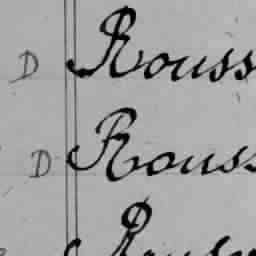 D Rouss
D Rouss